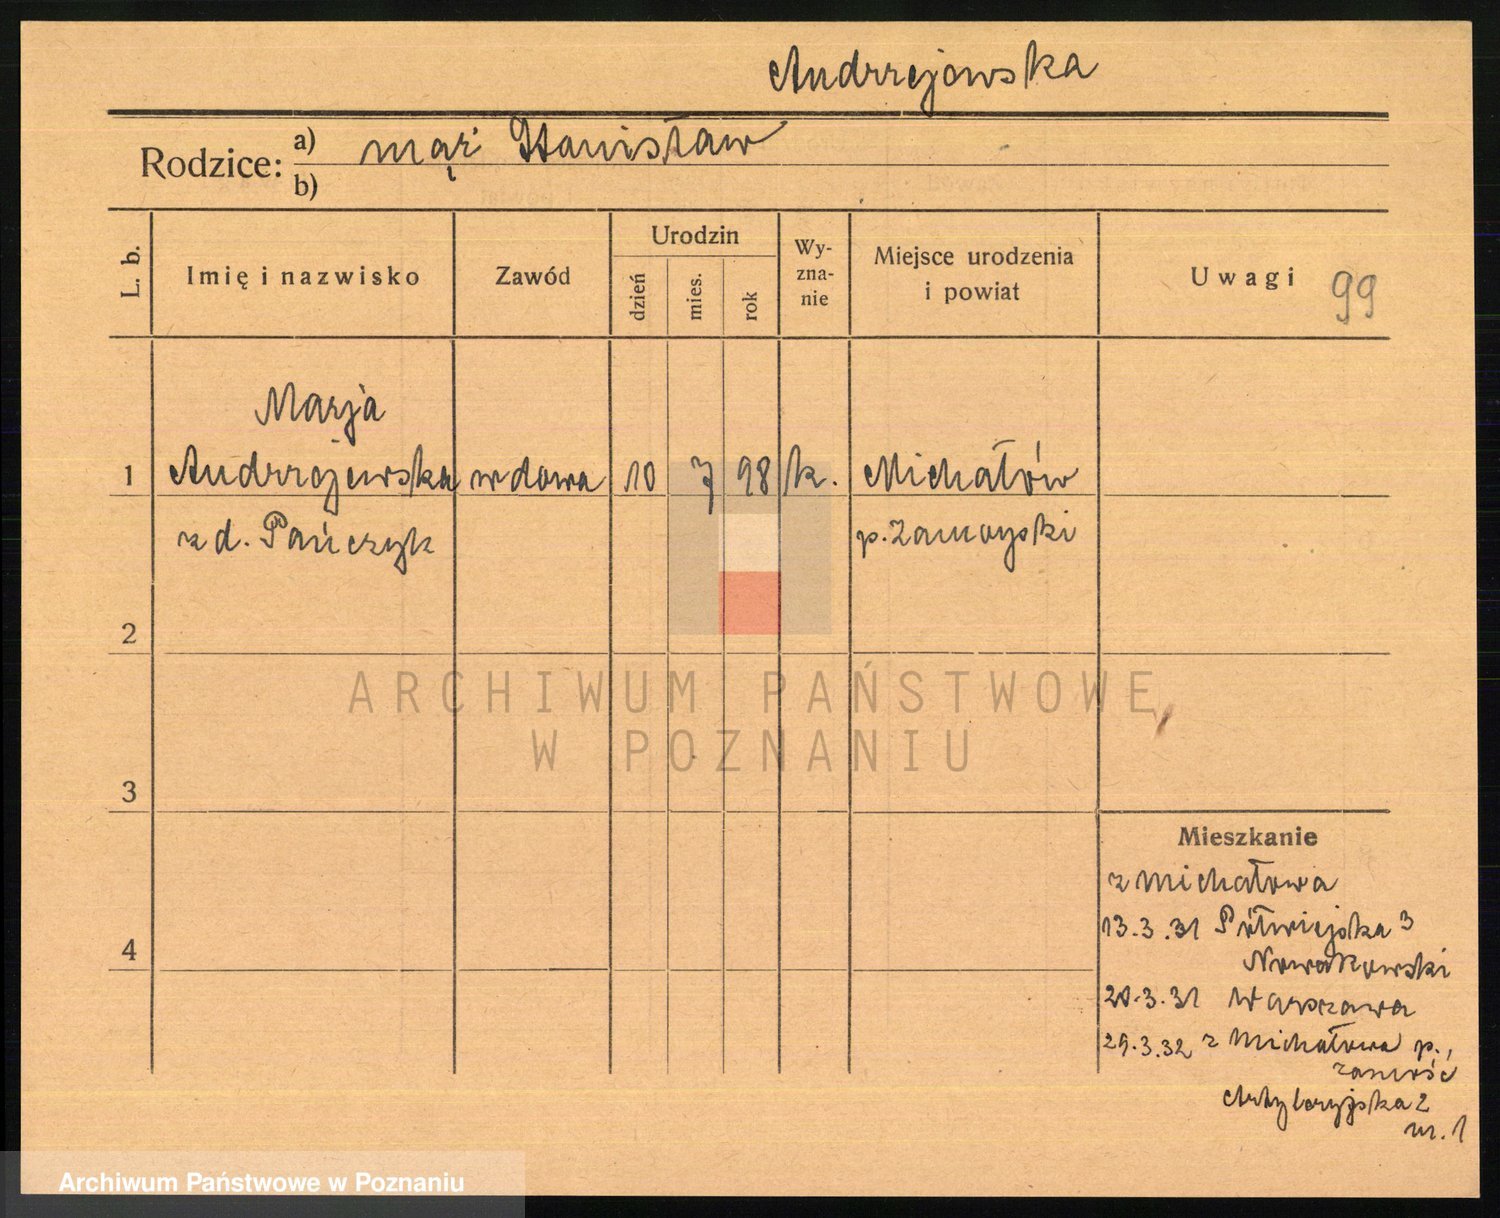 Andrzejewska
Rodzice: a) mąż Stanisław
b)
L. b.
Imię i nazwisko
Zawód
Urodzin
dzień
mies.
rok
Wy-
zna-
nie
Miejsce urodzenia
i powiat
Uwagi 99
Marja
1 Andrzejewska wdowa 10 7 98 k. Michałów
z d. Pańczyk p. Zamoyski
2
3
4
ARCHIWUM PAŃSTWOWE
W POZNANIU
Mieszkanie
z Michałowa
13.3.31 Półwiejska 3
Nowakowski
20.3.31 Warszawa
29.3.32 z Michałowa p.
Zamość
Artyleryjska 2
m. 1
Archiwum Państwowe w Poznaniu